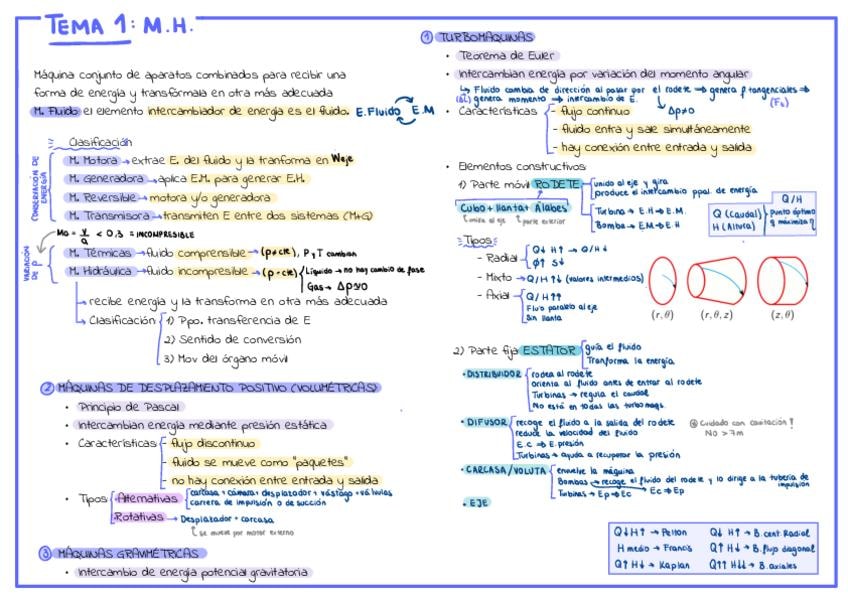 TEMA 1: M.H.
Máquina conjunto de aparatos combinados para recibir una
forma de energía y transfórmala en otra más adecuada
M. Fluido el elemento intercambiador de energía es el fluido. E.Fluido E.M
Clasificación
CONSERVACIÓN DE ENERGÍA
M. Motora → extrae E. del fluido y la tranforma en Weje
M. Generadora → aplica E.M. para generar E.H.
M. Reversible → motora y/o generadora
M. Transmisora → transmiten E entre dos sistemas (M+G)
Ma = v/a < 0,3 = INCOMPRESIBLE
VARIACIÓN DE ρ
M. Térmicas → fluido compresible → (ρ≠cte), P y T cambian
M. Hidráulica → fluido incompresible → (ρ=cte) Líquido → no hay cambio de fase
Gas → Δp≃0
recibe energía y la transforma en otra más adecuada
Clasificación 1) Ppo. transferencia de E
2) Sentido de conversión
3) Mov del órgano móvil
2 MÁQUINAS DE DESPLAZAMIENTO POSITIVO (VOLUMÉTRICAS)
• Principio de Pascal
• Intercambian energía mediante presión estática
• Características - flujo discontinuo
- fluido se mueve como "paquetes"
- no hay conexión entre entrada y salida
• Tipos Alternativas carcasa + cámara + desplazador + vástago + válvulas
carrera de impulsión o de succión
Rotativas → Desplazador + carcasa
se mueve por motor externo
3 MÁQUINAS GRAVIMÉTRICAS
• Intercambio de energía potencial gravitatoria
1 TURBOMÁQUINAS
• Teorema de Euler
• Intercambian energía por variación del momento angular
Fluido cambia de dirección al pasar por el rodete ⇒ genera F tangenciales ⇒
genera momento ⇒ intercambio de E.
• Características - flujo continuo Δp≠0
- fluido entra y sale simultáneamente
- hay conexión entre entrada y salida
• Elementos constructivos
1) Parte móvil RODETE unido al eje y gira
produce el intercambio ppal. de energía
Cubo + llanta + Álabes
unión al eje parte exterior
Turbina → E.H ⇒ E.M.
Bomba → E.M ⇒ E.H
Q/H
Q (Caudal)
H (Altura)
punto óptimo
η máxima η
Tipos
- Radial Q↓ H↑ → Q/H↓
∅↑ S↓
- Mixto → Q/H ↑↓ (valores intermedios)
- Axial Q/H↑↑
Flujo paralelo al eje
Sin llanta
(r, θ)
(r, θ, z)
(z, θ)
2) Parte fija ESTATOR guía el fluido
Tranforma la energía
• DISTRIBUIDOR rodea al rodete
orienta al fluido antes de entrar al rodete
Turbinas → regula el caudal
No está en todas las turbomaqs.
• DIFUSOR recoge el fluido a la salida del rodete
reduce la velocidad del fluido
E.C ⇒ E.presión
Turbinas → ayuda a recuperar la presión
Cuidado con cavitación!
NO > 7m
• CARCASA/VOLUTA envuelve la máquina
Bombas → recoge el fluido del rodete y lo dirige a la tubería de impulsión
Turbinas → Ep ⇒ Ec Ec ⇒ Ep
• EJE
Q↓H↑ → Pelton Q↓ H↑ → B.cent. Radial
H medio → Francis Q↑ H↓ → B.flujo diagonal
Q↑ H↓ → Kaplan Q↑↑ H↓↓ → B.axiales